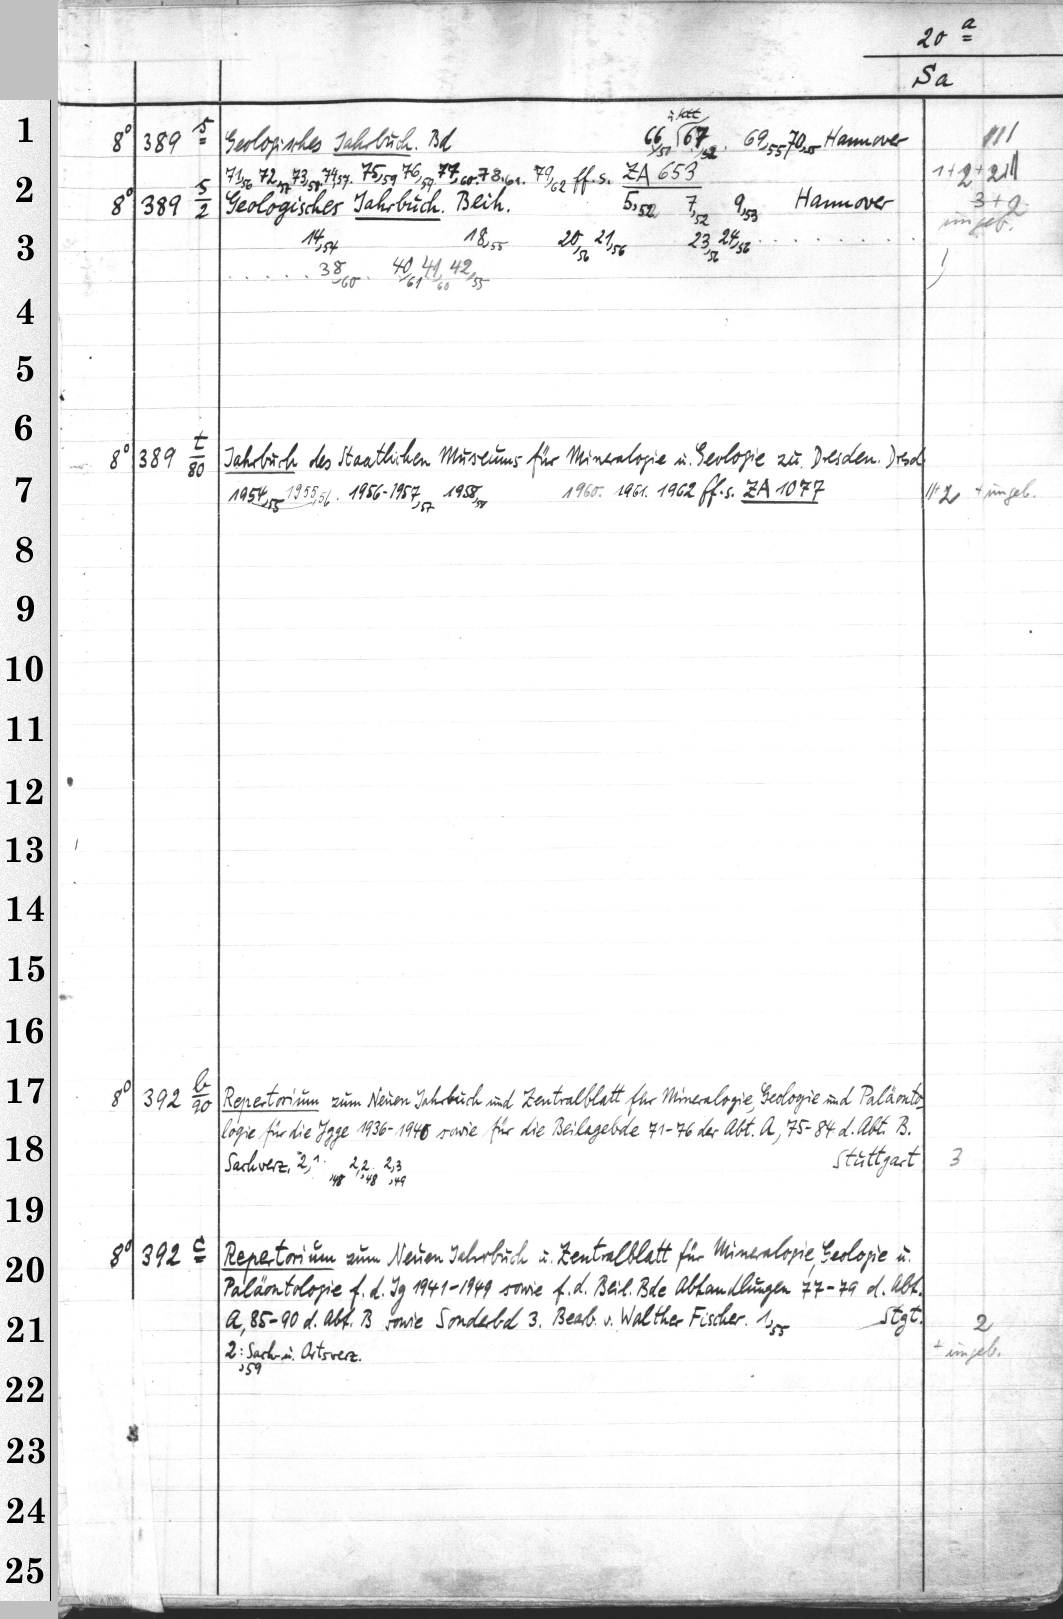 20 a
Sa
1
8° 389 s Geologisches Jahrbuch. Bd 66,51 67,52. 69,55 70,55 Hannover III
71,56 72,57 73,58 74,57. 75,59 76,59 77,60. 78,61. 79,62 ff. s. ZA 653 1+2+2
2
8° 389 s/2 Geologisches Jahrbuch. Beih. 5,52 7,52 9,53 Hannover 3+2
ungeb.
3
14,54 18,55 20,56 21,56 23,56 24,56 . . . . . . . . .
. . . . . . 38,60 . 40,61 41,60 42,55
4
5
6
8° 389 t/80 Jahrbuch des Staatlichen Museums für Mineralogie u. Geologie zu Dresden. Dresd
7
1954,55 1955,56. 1956-1957,57 1958,58 1960. 1961. 1962 ff. s. ZA 1077 2 + ungeb.
8
9
10
11
12
13
14
15
16
17
8° 392 b/90 Repertorium zum Neuen Jahrbuch und Zentralblatt für Mineralogie, Geologie und Paläonto-
logie für die Jgge 1936-1940 sowie für die Beilagebde 71-76 der Abt. A, 75-84 d. Abt. B.
18
Sachverz. 2,1 ,48 2,2 ,48 2,3 ,49 Stuttgart 3
19
8° 392 c Repertorium zum Neuen Jahrbuch u. Zentralblatt für Mineralogie, Geologie u.
20
Paläontologie f. d. Jg 1941-1949 sowie f. d. Beil. Bde Abhandlungen 77-79 d. Abt.
21
A, 85-90 d. Abt. B sowie Sonderbd 3. Bearb. v. Walther Fischer. 1,55 Stgt. 2
2: Sach- u. Ortsverz. + ungeb.
,59
22
23
24
25